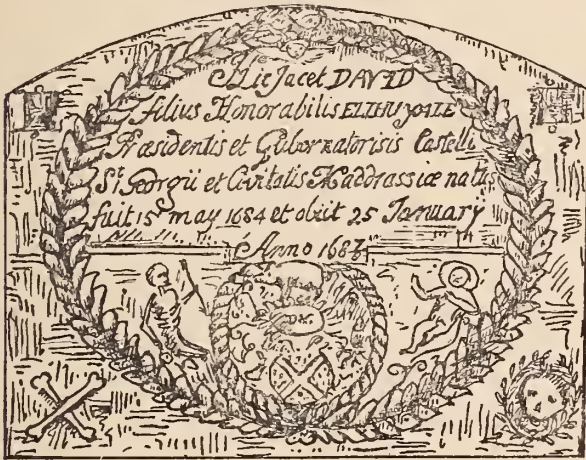 Hic Jacet DAVID
filius Honorabilis ELIHU YALE
Præsidentis et Gubernatorisis Castelli
St. Georgii et Civitatis Maddrassiæ natus
fuit 15 may 1684 et obiit 25 January
Anno 1687